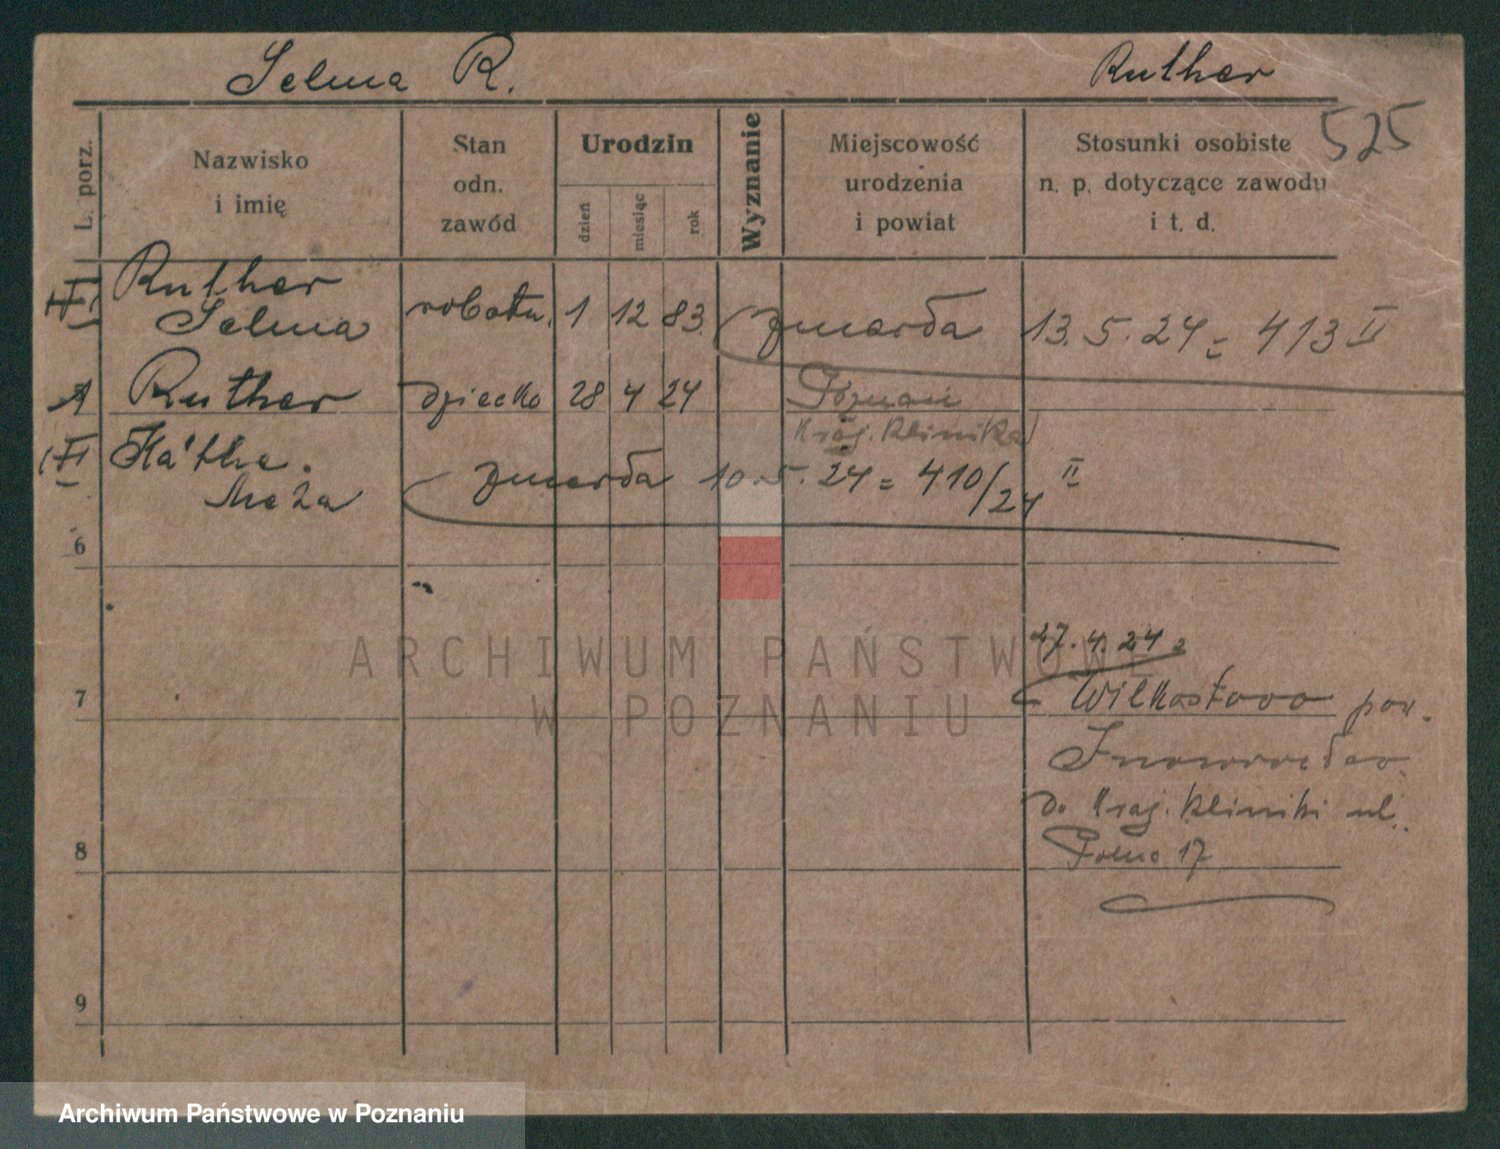 Selma R. Ruther
525
L. porz.
Nazwisko
i imię
Stan
odn.
zawód
Urodzin
dzień
miesiąc
rok
Wyznanie
Miejscowość
urodzenia
i powiat
Stosunki osobiste
n. p. dotyczące zawodu
i t. d.
Ruther
Selma robotn. 1 12 83 zmarła 13.5.24 = 413 II
Ruther dziecko 28 4 24 Poznań
Kraj. Klinika
Käthe
zmarła 10.5.24 = 410/24 II
6
27.4.24 =
7 Wilkostowo pow.
Inowrocław
do Kraj. Kliniki ul.
8 Polna 17
9
ARCHIWUM PAŃSTWOWE
W POZNANIU
Archiwum Państwowe w Poznaniu